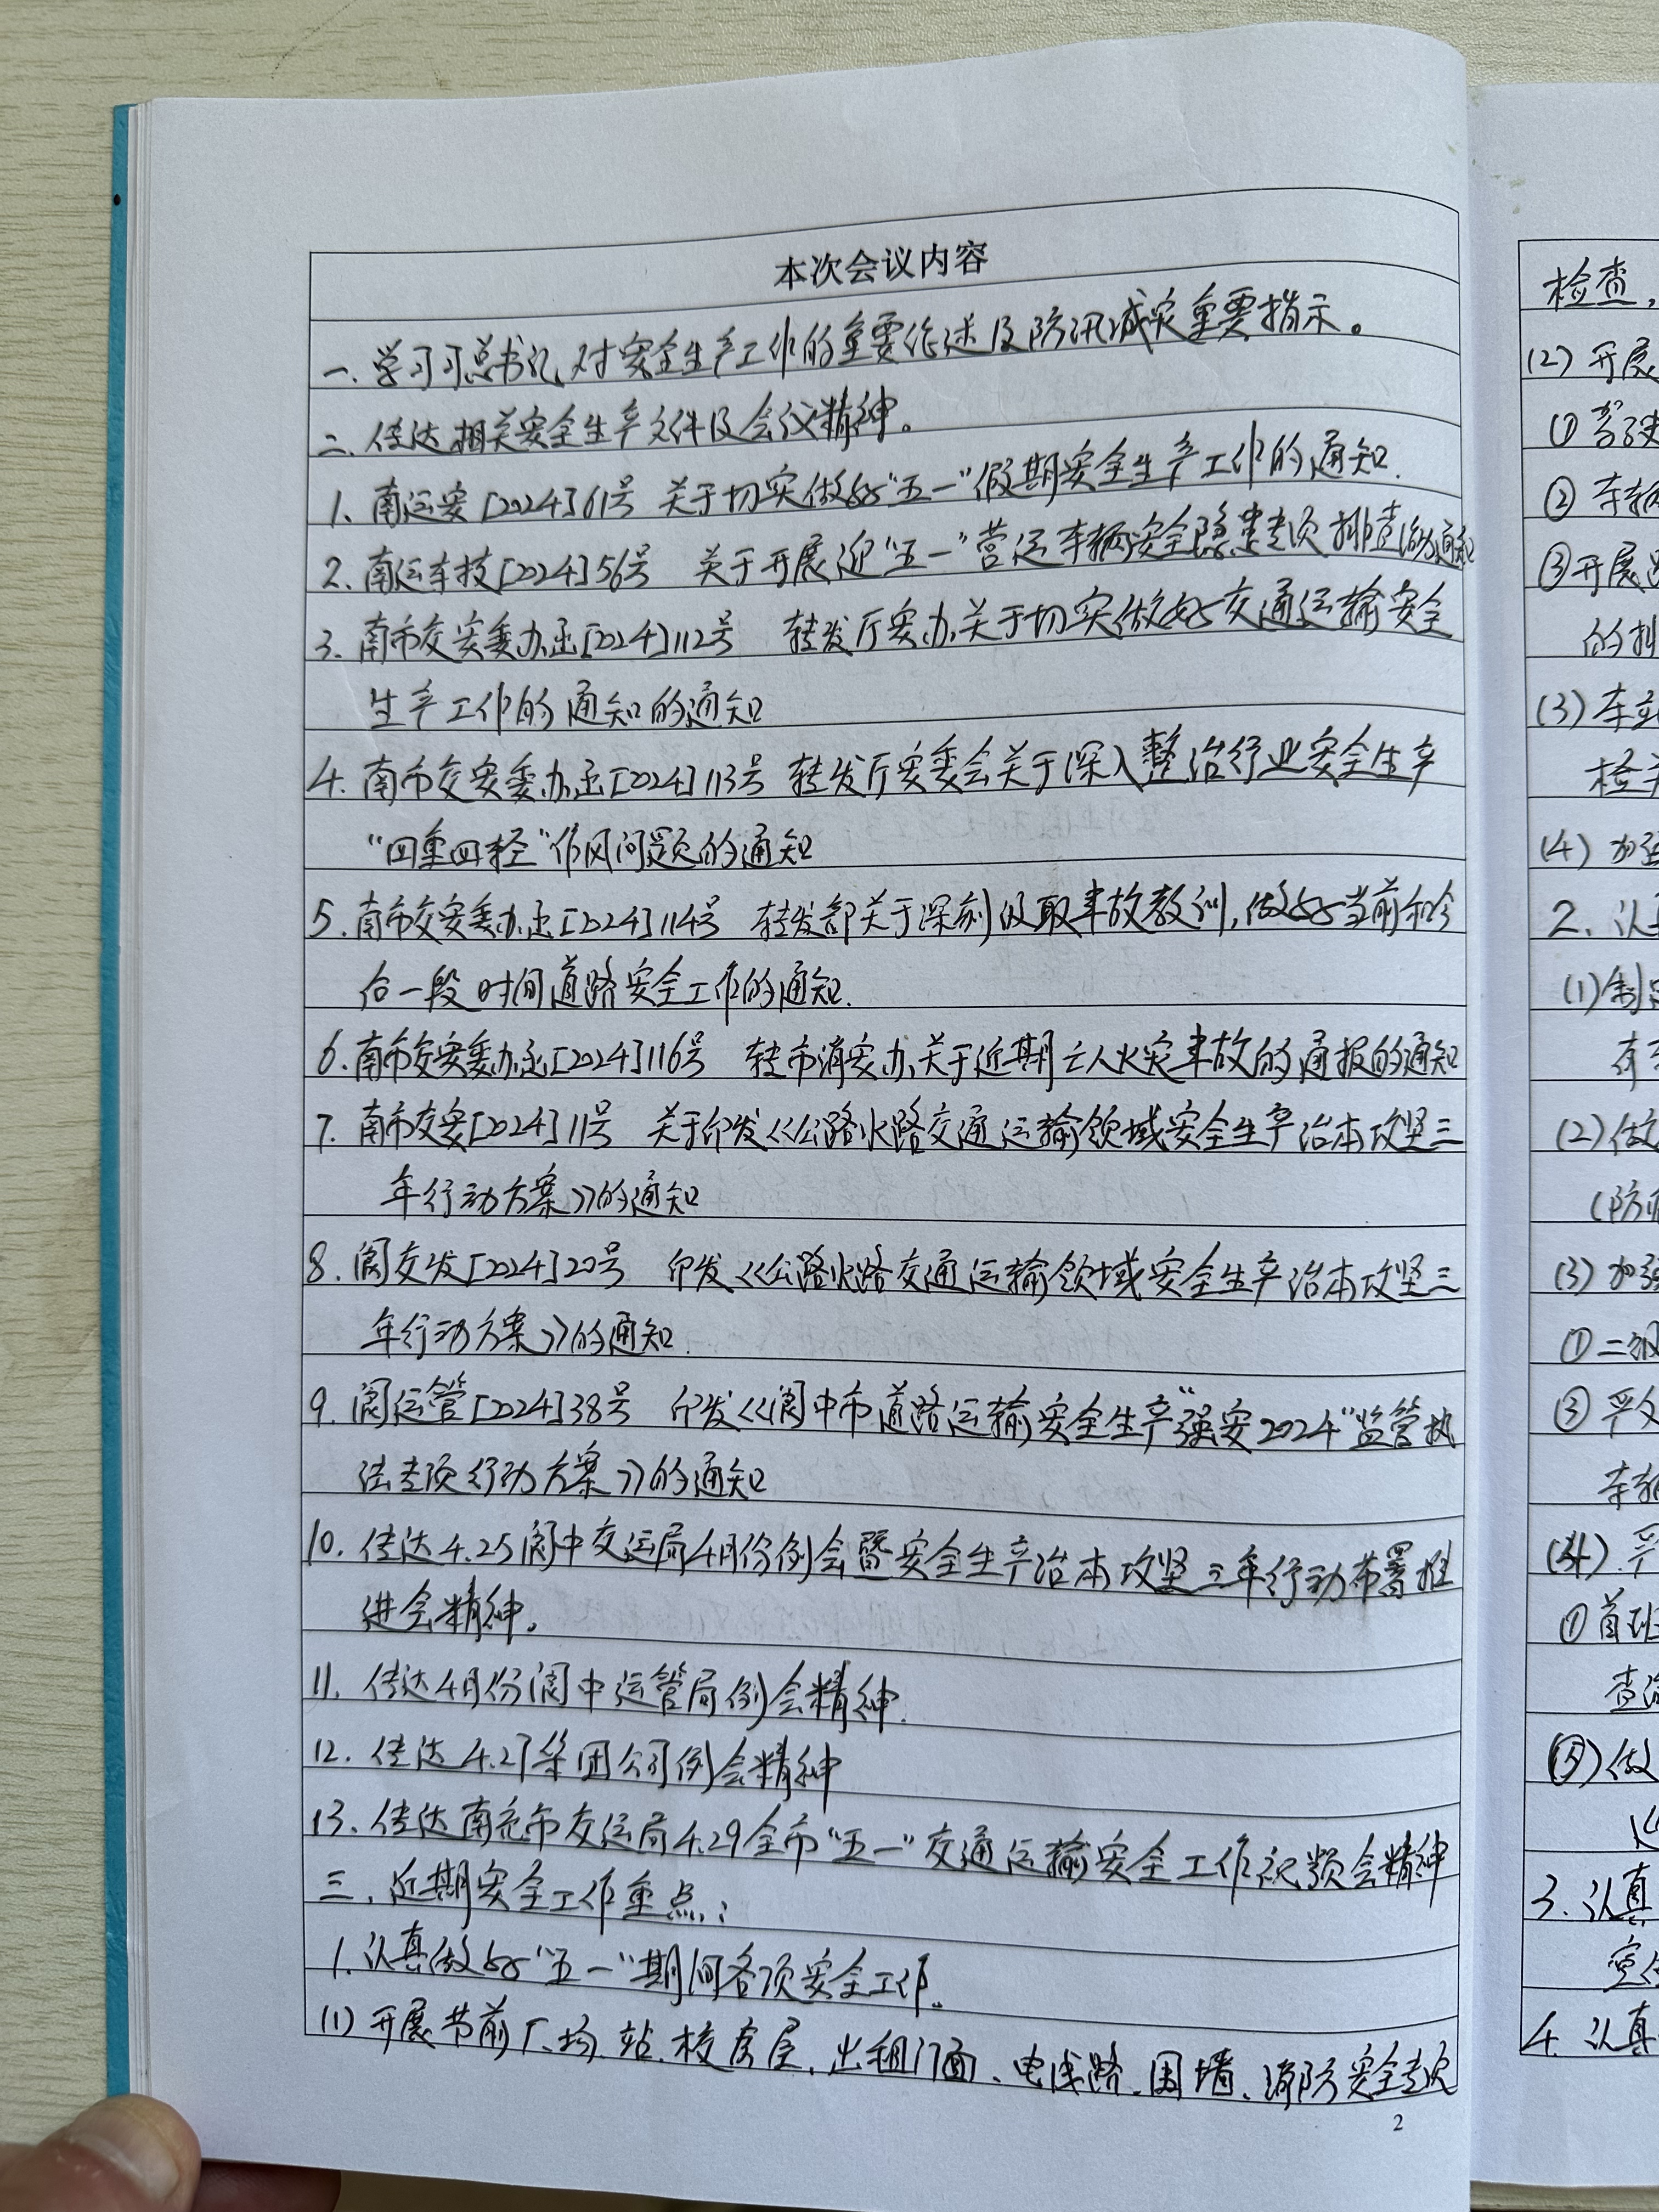 本次会议内容
一、学习习总书记对安全生产工作的重要论述及防汛减灾重要指示。
二、传达相关安全生产文件及会议精神。
1、南运安[2024]61号 关于切实做好“五一”假期安全生产工作的通知.
2、南运车技[2024]56号 关于开展迎“五一”营运车辆安全隐患专项排查治理通知
3、南市交安委办函[2024]112号 转发厅安办关于切实做好交通运输安全
生产工作的通知的通知
4、南市交安委办函[2024]113号 转发厅安委会关于深入整治行业安全生产
“四重四轻”作风问题的通知
5、南市交安委办函[2024]114号 转发部关于深刻汲取事故教训,做好当前和今
后一段时间道路安全工作的通知.
6、南市交安委办函[2024]116号 转市消安办关于近期亡人火灾事故的通报的通知
7、南市交安[2024]11号 关于印发《公路水路交通运输领域安全生产治本攻坚三
年行动方案》的通知
8、阆交发[2024]20号 印发《公路水路交通运输领域安全生产治本攻坚三
年行动方案》的通知.
9、阆运管[2024]38号 印发《阆中市道路运输安全生产“强安2024”监管执
法专项行动方案》的通知
10、传达4.25阆中交运局4月份例会暨安全生产治本攻坚三年行动布署推
进会精神。
11、传达4月份阆中运管局例会精神.
12、传达4.27集团公司例会精神
13、传达南充市交运局4.29全市“五一”交通运输安全工作视频会精神
三、近期安全工作重点:
1、认真做好“五一”期间各项安全工作。
(1)开展节前厂、场、站、校房屋、出租门面、电线路、围墙、消防安全专项
2
检查,
(2)开展
①驾驶
②车辆
③开展
的
(3)车
检
(4)加强
2、认
(1)制
有
(2)做
(防
(3)加强
①二级
③严
车辆
(4).严
①首班
查
(5)做
3、认真
4、认真